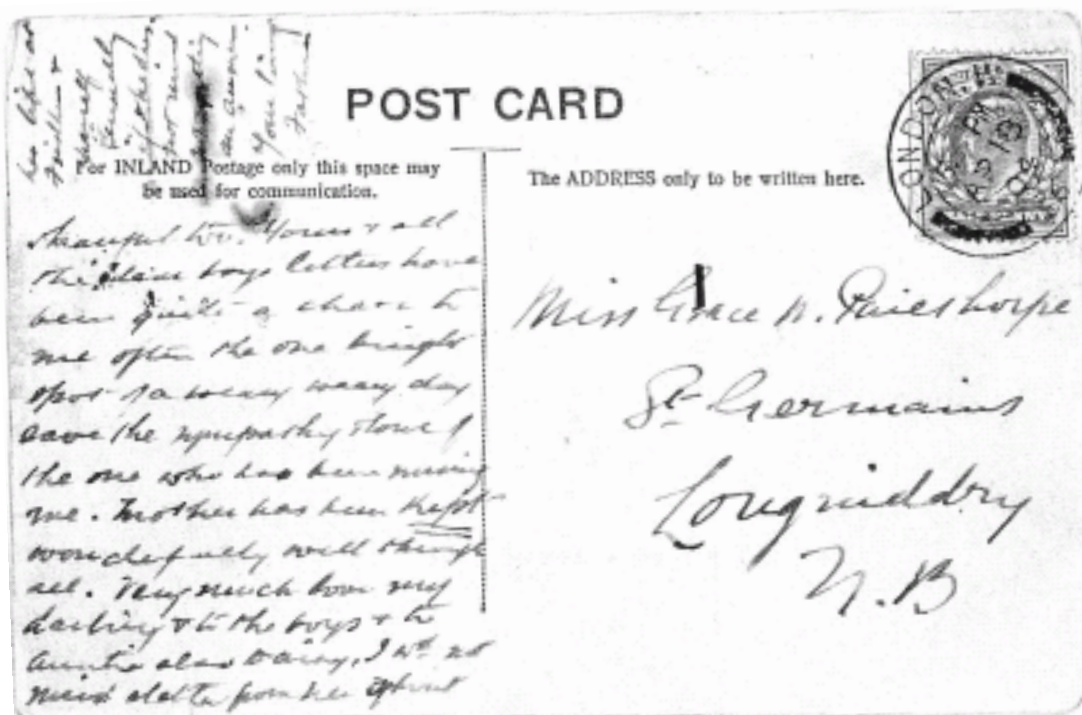 POST CARD
For INLAND Postage only this space may
be used for communication.
The ADDRESS only to be written here.
LONDON
AP 13
08
thankful too. Yours & all
the dear boys letters have
been quite a cheer to
me often the one bright
spot in a weary weary day
save the sympathy & love of
the one who has been nursing
me. Mother has been kept
wonderfully well through
all. Very much love my
darling & to the boys & to
Auntie also Daisy. I wd not
mind a letter from her about
her life at
&
herself
Generally
if she does
not mind
an answer.
Your loving
Father
Miss Grace N.
St Germains
Longniddry
N.B